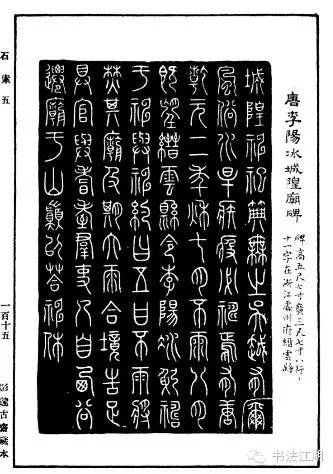 唐李陽冰城隍廟碑
碑高五尺七寸廣三尺七寸八行行
十一字在浙江處州府縉雲縣
城隍神祀典無之吳越有爾
風俗水旱疾疫必禱焉有唐
乾元二年秋七月不雨八月
既望縉雲縣令李陽冰躬禱
于神與神約曰五日不雨將
焚其廟及期大雨合境告足
具官與耆耋羣吏乃自西谷
遷廟于山巔以答神休
石索五
一百十五
古齋藏本
书法江湖